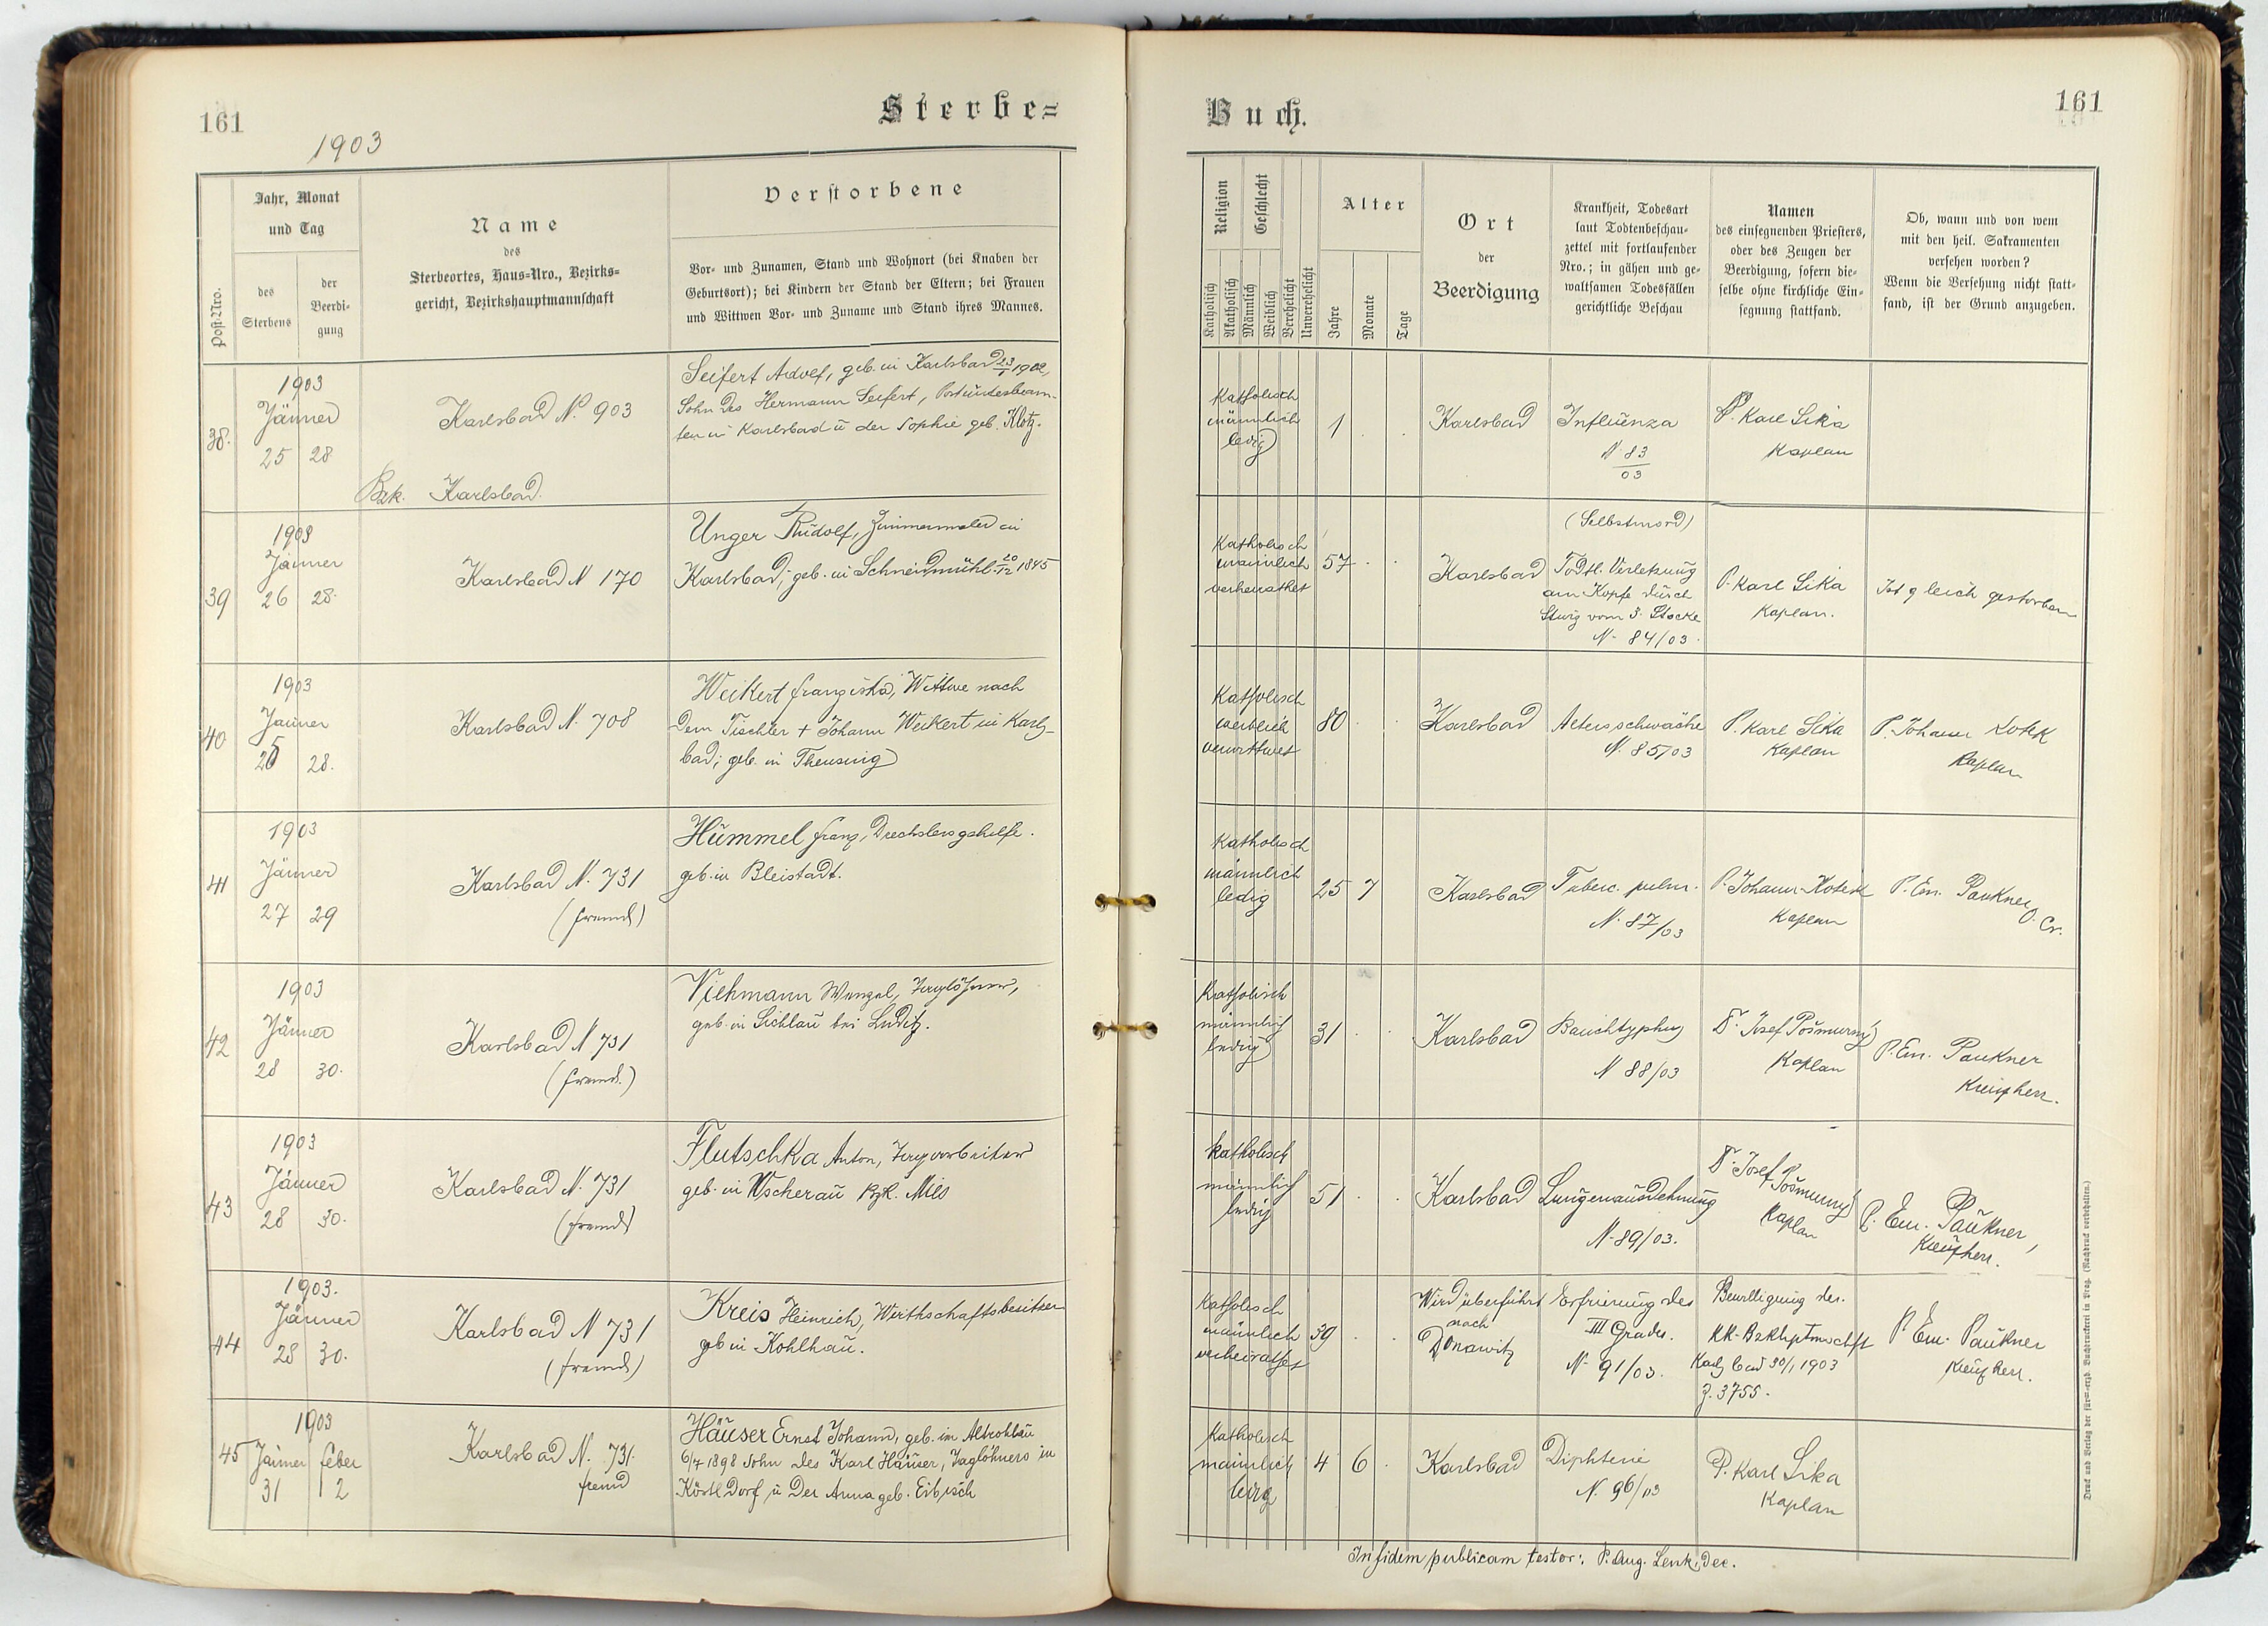 161
1903
Sterbe=
Post-Nro.
Jahr, Monat
und Tag
des
Sterbens
der
Beerdi-
gung
Name
des
Sterbeortes, Haus=Nro., Bezirks=
gericht, Bezirkshauptmannschaft
Verstorbene
Vor- und Zunamen, Stand und Wohnort (bei Knaben der
Geburtsort); bei Kindern der Stand der Eltern; bei Frauen
und Wittwen Vor- und Zuname und Stand ihres Mannes.
38.
1903
Jänner
25 28
Karlsbad N. 903
Bzk. Karlsbad.
Seifert Adolf, geb. in Karlsbad 23/1 1902,
Sohn des Hermann Seifert,
ten in Karlsbad u der Sophie geb. Klotz.
39
1903
Jänner
26 28.
Karlsbad N 170
Unger Rudolf, Zimmermaler in
Karlsbad; geb. in Schneidmühl 20/12 1845
40
1903
Jänner
25 28.
Karlsbad N. 708
Weikert Franziska, Wittwe nach
dem Tischler + Johann Weikert in Karls-
bad; geb. in Theusing
41
1903
Jänner
27 29
Karlsbad N. 731
(fremd)
Hummel Franz, Drechslergehilfe.
geb. in Bleistadt.
42
1903
Jänner
28 30.
Karlsbad N 731
(fremd.)
Viehmann Wenzel, Taglöhner,
geb. in Sichlau bei Luditz.
43
1903
Jänner
28 30.
Karlsbad N. 731
(fremd)
Flutschka Anton, Bergarbeiter
geb. in Wscherau Bzk. Mies
44
1903.
Jänner
28 30.
Karlsbad N 731
(fremd)
Kreis Heinrich, Wirthschaftsbesitzer
geb in Kohlhau.
45
1903
Jänner Feber
31 2
Karlsbad N. 731.
fremd
Häuser Ernst Johann, geb. in Altrohlau
6/7 1898 Sohn des Karl Häuser, Taglöhners in
Köstldorf u der Anna geb. Eibisch
Buch.
161
Religion
Geschlecht
Katholisch
Akatholisch
Männlich
Weiblich
Verehelicht
Unverehelicht
Alter
Jahre
Monate
Tage
Ort
der
Beerdigung
Krankheit, Todesart
laut Todtenbeschau-
zettel mit fortlaufender
Nro.; in gähen und ge-
waltsamen Todesfällen
gerichtliche Beschau
Namen
des einsegnenden Priesters,
oder des Zeugen der
Beerdigung, sofern die-
selbe ohne kirchliche Ein-
segnung stattfand.
Ob, wann und von wem
mit den heil. Sakramenten
versehen worden?
Wenn die Versehung nicht statt-
fand, ist der Grund anzugeben.
Katholisch
männlich
ledig
1 . .
Karlsbad
Influenza
N 83
03
P. Karl Sika
Kaplan
Katholisch
männlich
verheirathet
57 . .
Karlsbad
(Selbstmord)
Tödtl. Verletzung
am Kopfe durch
Sturz vom 3. Stocke
N. 84/03.
P. Karl Sika
Kaplan.
Ist gleich gestorben
Katholisch
weiblich
verwittwet
80 . .
Karlsbad
Altersschwäche
N. 85/03
P. Karl Sika
Kaplan
P. Johann Kotek
Kaplan
Katholisch
männlich
ledig
25 7
Karlsbad
Tuberc. pulm.
N. 87/03
P. Johann Kotek
Kaplan
P. Em. Paukner
O. Cr.
Katholisch
männlich
ledig
31 . .
Karlsbad
Bauchtyphus
N 88/03
Dr. Josef Pošmurny
Kaplan
P. Em. Paukner
Kreuzherr.
Katholisch
männlich
ledig
51 . .
Karlsbad
Lungenausdehnung
N. 89/03.
Dr. Josef
Pošmurny
Kaplan
P. Em. Paukner,
Kreuzherr.
Katholisch
männlich
verheirathet
39 . .
Wird überführt
nach
Donawitz
Erfrierung des
III Grades.
N. 91/03.
Bewilligung der.
KK. Bzkhptmschft
Karlsbad 30/1 1903
Z. 3755.
P. Em. Paukner
Kreuzherr.
Katholisch
männlich
ledig
4 6 .
Karlsbad
Diphterie
N. 96/03
P. Karl Sika
Kaplan
In fidem publicam testor: P. Aug. Lenk, Dec.
Druck und Verlag der fürst=erzb. Buchdruckerei in Prag. (Nachdruck vorbehalten.)